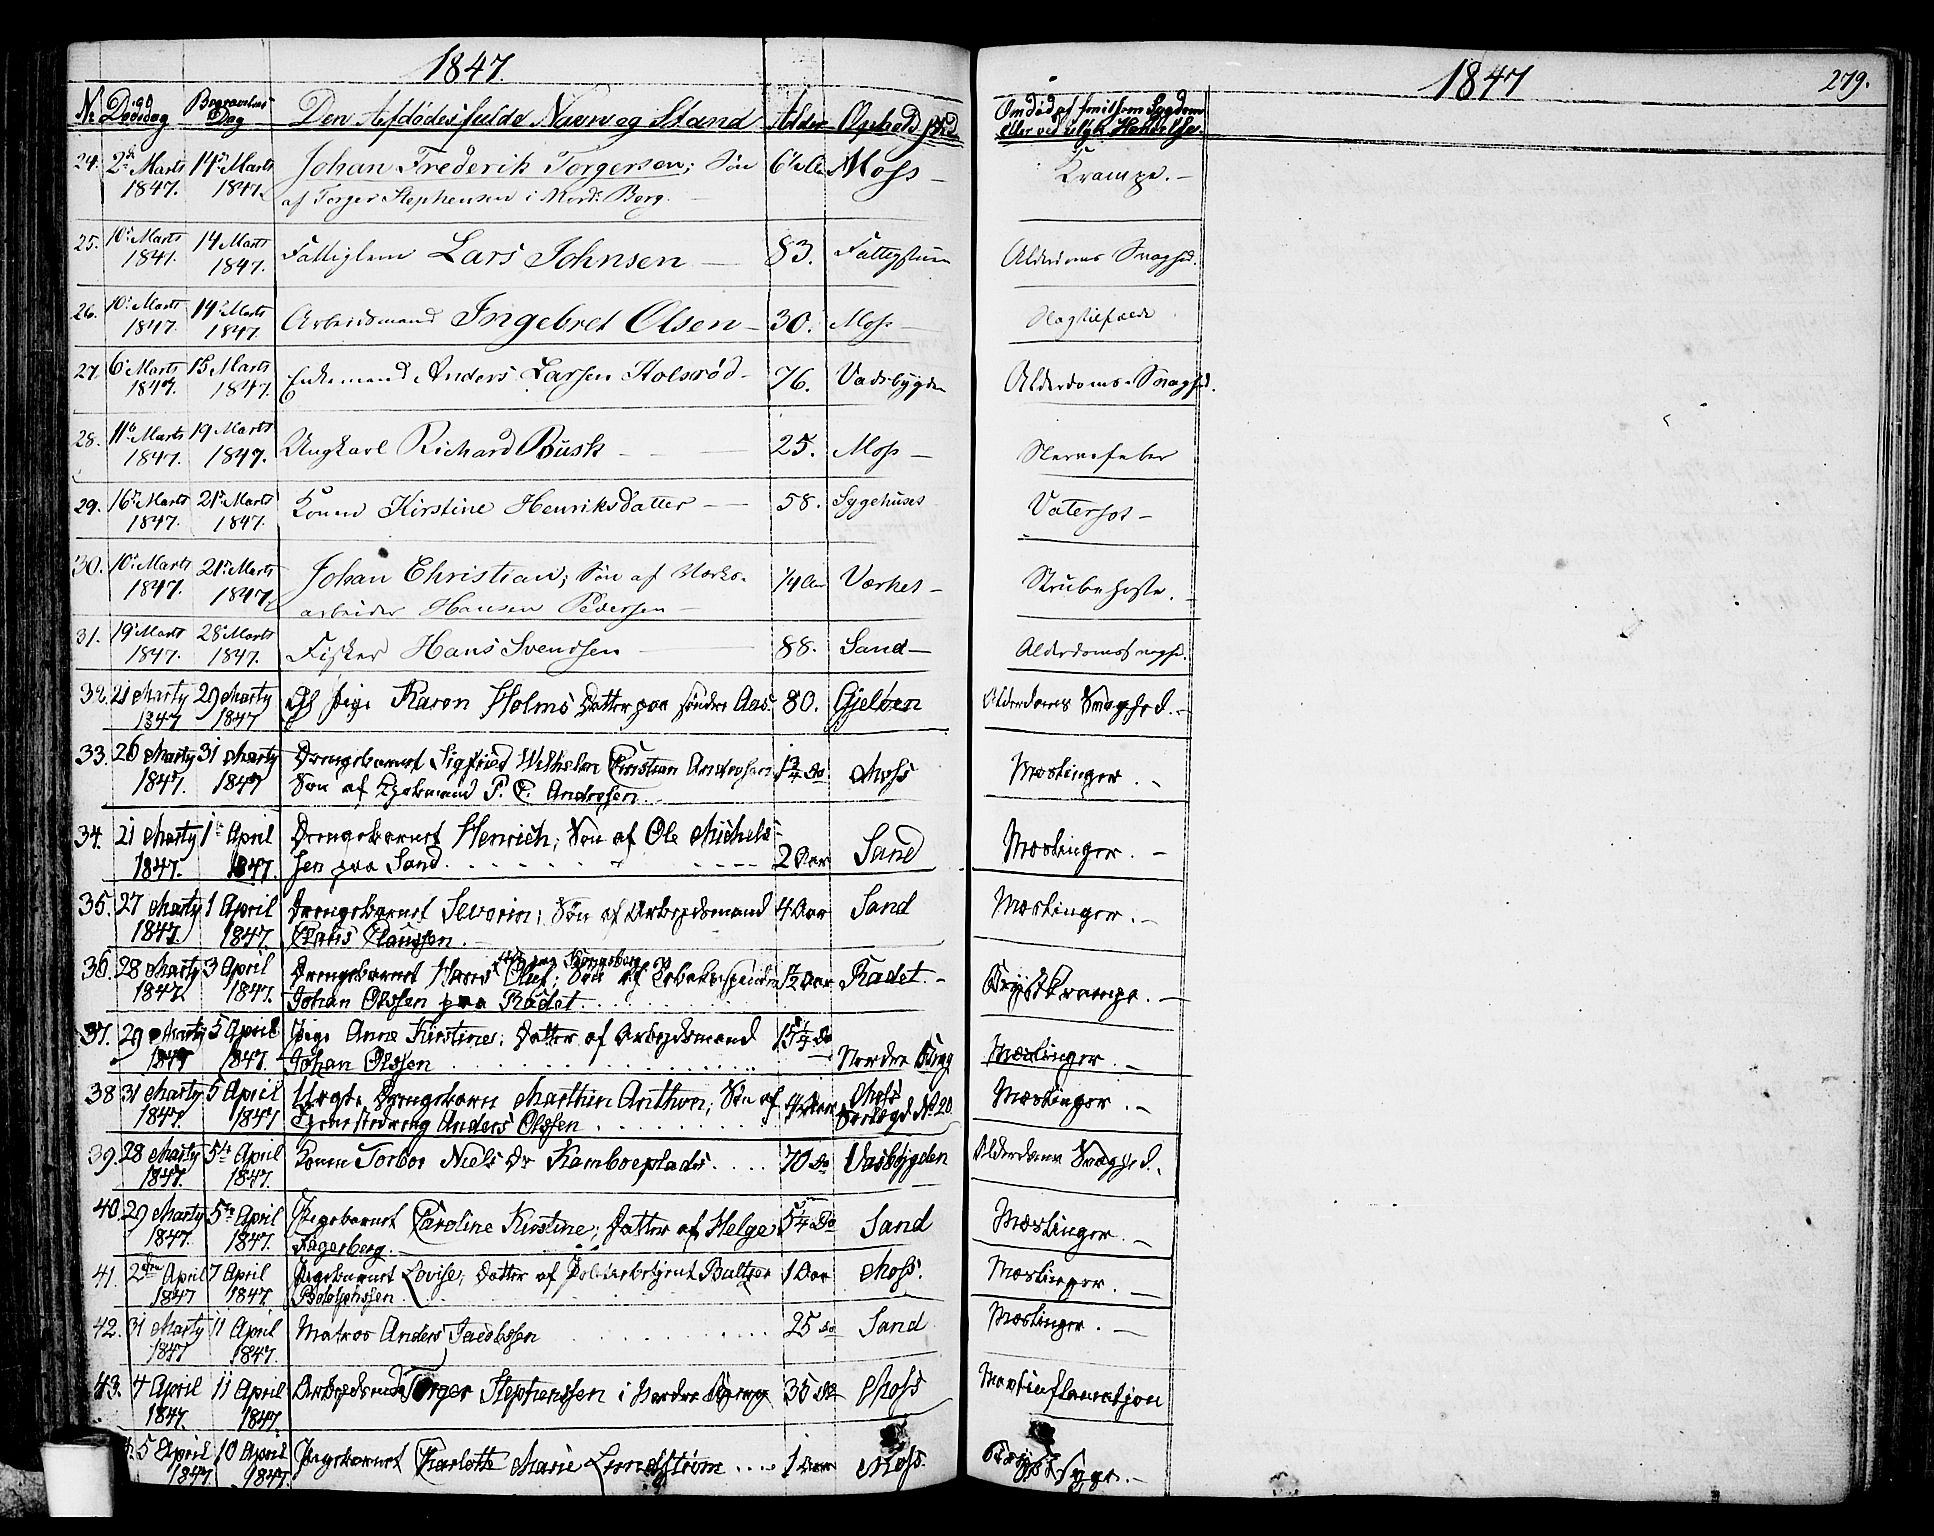 1847.
1847
279.
No Dødsdag Begravelses Dag Den Afdødes fulde Navn og Stand Alder Opholds Sted Om død af smitsom Sygdom
eller ved ulyk. Hændelse.
24. 2de Marts 14de Marts Johan Frederik Torgersen; Søn 6 Moss Krampe.
1847. 1847. af Torger Stephensen i Nord: Berg.
25. 10de Marts 14 Marts Fattiglem Lars Johnsen 83. Alderdoms Svaghed.
1847. 1847.
26. 10de Marts 14de Marts Arbeidsmand Ingebret Olsen 30. Moss Slagtilfælde
1847. 1847.
27. 6te Marts 15 Marts Enkemand Anders Larsen 76. Vadsbygden Alderdoms-Svaghed.
1847. 1847.
28. 11te Marts 19 Marts Ungkarl Richard Busk 25. Moss Nervefeber
1847. 1847.
29. 16de Marts 21de Marts Konen Kirstine Henriksdatter 58. Sygehuset Vatersot
1847. 1847.
30. 10de Marts 21de Marts Johan Christian; Søn af Værks- 1/4 Aar Værket Strubehoste.
1847. 1847. arbeider Hansen Pedersen
31. 19de Marts 28de Marts Fisker Hans Svendsen 88. Sand Alderdomssvaghed.
1847. 1847.
32. 21 Marty 29 Marty Gl Pige Karen Holms Datter paa søndre Aas. 80. Gjeløen Alderdoms Svaghed.
1847 1847
33. 26 Marty 31 Marty Drengebarnet Sigfried Wilhelm Christian Andresen 1 3/4 Do Moss Mæslinger.
1847. 1847 Søn af P. C. Andresen.
34. 21 Marty 1te April Drengebarnet Henrich; Søn af Ole Michels
1847. 1847. sen paa Sand. 2 Aar Sand Mæslinger.
35. 27 Marty 1 April Drengebarnet Severin; Søn af Arbejdsmand 4 Aar Sand Mæslinger.
1847. 1847. Claus Claussen.
36. 28 Marty 3 April Drengebarnet Hans Oluf; Søn af 1 1/2 Aar Rådet. Brystkrampe.
1847. 1847. Johan Olssen paa Rådet.
37. 29 Marty 5 April Pige Anne Kirstine; Datter af Arbejdsmand 15 1/2 Do Mæslinger.
1847 1847. Johan Olssen Nordre Berg
38 31 Marty 5 April Uægte Drengebarn Marthin Anthon; Søn af 1/2 Aar Moss Mæslinger.
1847. 1847 Anders Olssen No 20
39. 28 Marty 5te April Konen Torbor Niels Dr Kamboepladss. 70 Do Vasbygden Alderdoms Svaghed.
1847. 1847.
40. 29 Marty 5te April Pigebarnet Caroline Kirstine; Datter af Helge 5 1/4 Do Sand Mæslinger.
1847. 1847. Fagerberg.
41. 2den April 7 April Pigebarnet Lovise; Datter af Politiebetjent Baltzer 1 Aar Moss. Mæslinger.
1847 1847.
42. 31 Marty 11 April Matros Anders Jacobssen 25 Do Sand Mæslinger.
1847 1847.
43. 4 April 11 April Arbejdsmd Torger Stephenssen i Nordre Bjerg 35 Do Moss
1847. 1847.
5 April 10 April Pigebarnet Charlotte Marie Lundstrøm 1 Aar Moss. Brystsyge.
1847. 1847.